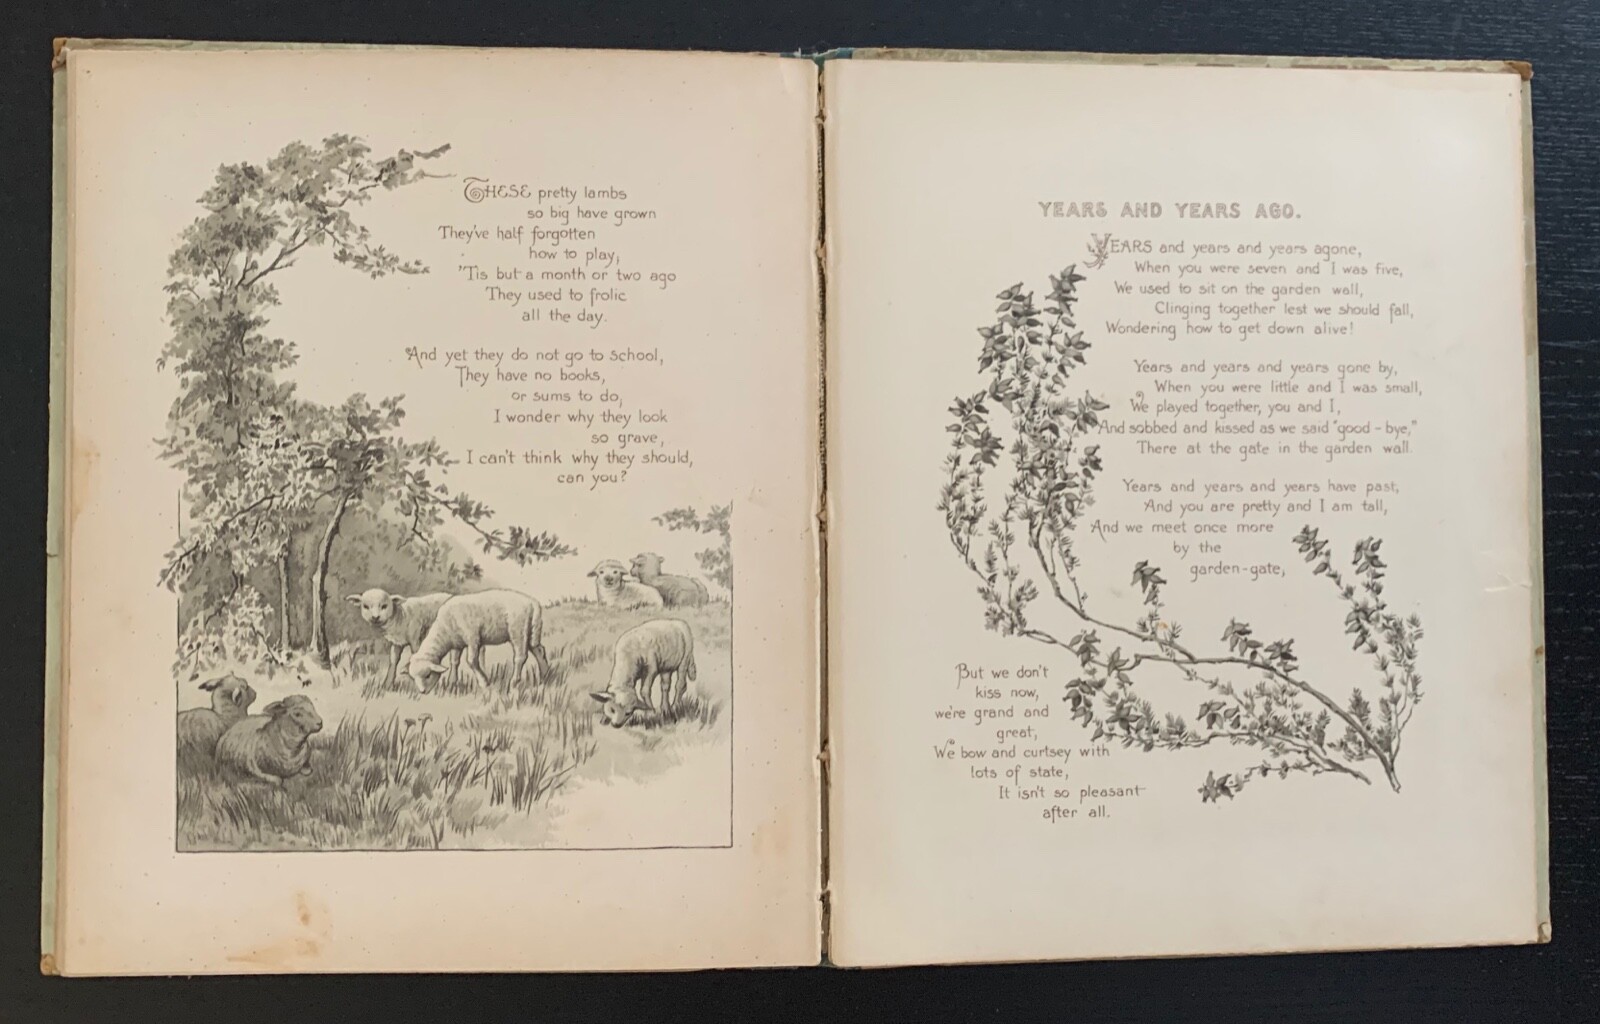 THESE pretty lambs
so big have grown
They've half forgotten
how to play,
'Tis but a month or two ago
They used to frolic
all the day.
And yet they do not go to school,
They have no books,
or sums to do,
I wonder why they look
so grave,
I can't think why they should,
can you?
YEARS AND YEARS AGO.
YEARS and years and years agone,
When you were seven and I was five,
We used to sit on the garden wall,
Clinging together lest we should fall,
Wondering how to get down alive!
Years and years and years gone by,
When you were little and I was small,
We played together, you and I,
And sobbed and kissed as we said "good-bye,"
There at the gate in the garden wall.
Years and years and years have past,
And you are pretty and I am tall,
And we meet once more
by the
garden-gate,
But we don't
kiss now,
we're grand and
great,
We bow and curtsey with
lots of state,
It isn't so pleasant
after all.